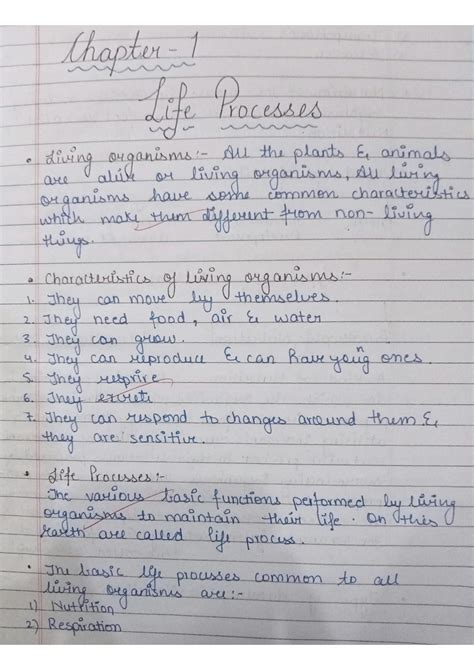 Chapter-1
Life Processes
• Living organisms:- All the plants & animals
are alive or living organisms, All living
organisms have some common characteristics
which make them different from non-living
things.
• Characteristics of living organisms:-
1. They can move by themselves.
2. They need food, air & water
3. They can grow.
4. They can reproduce & can have young ones.
5. They respire
6. They excrete
7. They can respond to changes around them &
they are sensitive.
• Life Processes:-
The various basic functions performed by living
organisms to maintain their life. On this
Earth are called life process.
• The basic life processes common to all
living organisms are:-
1) Nutrition
2) Respiration